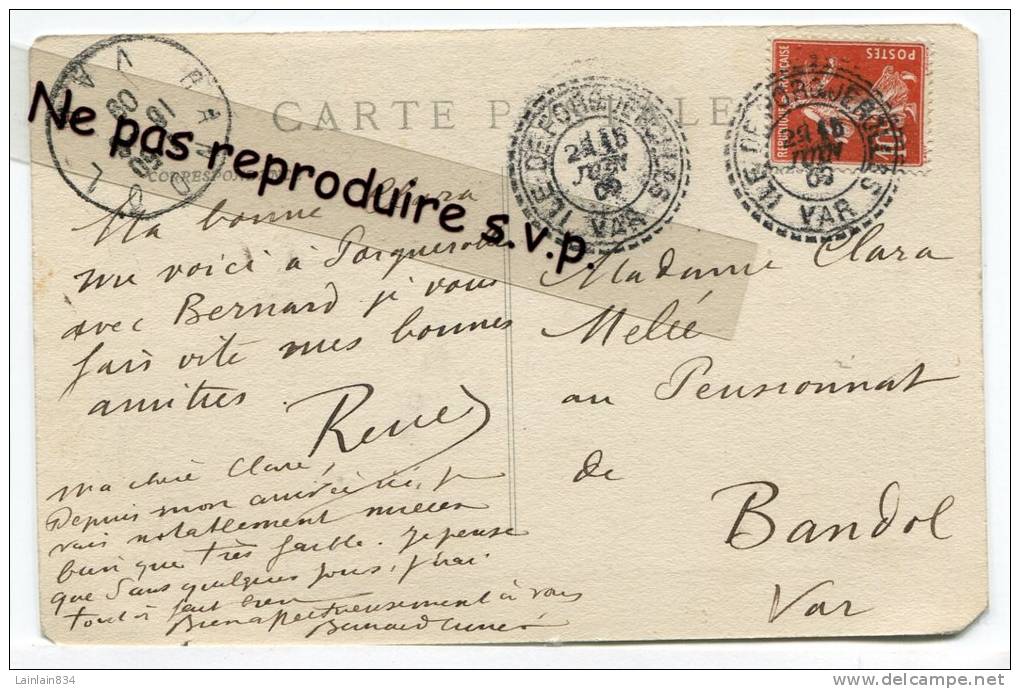 CARTE P LE
CORRESPONDANCE
Ne pas reproduire s.v.p.
BANDOL
VAR
18
09
ILE DE PORQUEROLLES
VAR
JUIN
09
ILE DE PORQUEROLLES
VAR
JUIN
09
POSTES
REPUBLIQUE FRANÇAISE
10
Ma bonne Clara
me voici à Porquerolles
avec Bernard je vous
fais vite mes bonnes
amitiés.
René
Ma chère Clara,
Depuis mon arrivée ici, je
vais notablement mieux
bien que très faible. Je pense
que dans quelques jours, j'irai
tout à fait bien
Bien affectueusement à vous
Bernard
Madame Clara
Melié
au Pensionnat
de
Bandol
Var
Lainlain834
delcampe.net